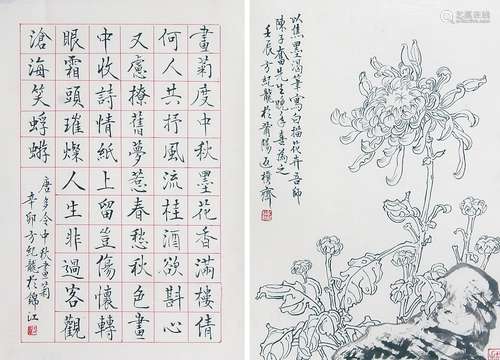 畫菊度中秋墨花香滿樓倩
何人共抒風流桂酒欲斟心
又慮撩舊夢惹春愁秋色畫
中收詩情紙上留豈傷懷轉
眼霜頭璀燦人生非過客觀
滄海笑蜉蝣
唐多令中秋畫菊
辛卯方紀龍於錦江
以焦墨渴筆寫白描花卉吾師
陳子奮先生晚年喜為之
壬辰方紀龍於莆陽返樸齋